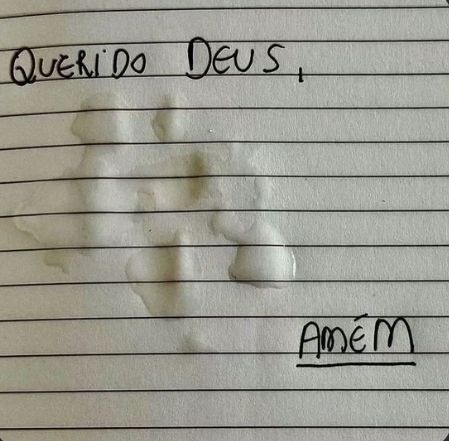 QUERIDO DEUS,
AMÉM